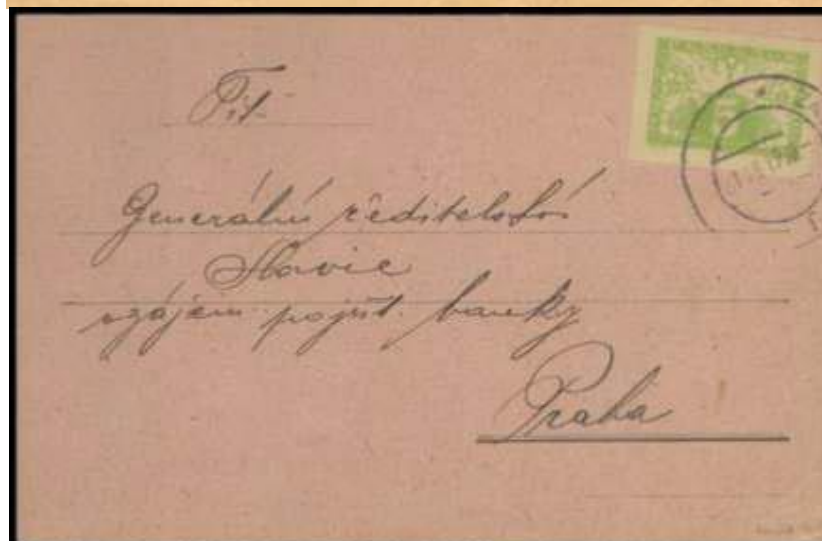 Tit.
Generální ředitelství
Slavie
vzájem. pojišť. banky
Praha